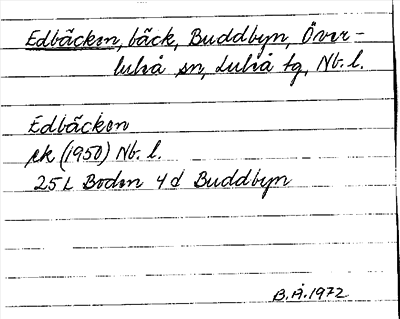 Edbäcken, bäck, Buddbyn, Över-
luleå sn, Luleå tg, Nb. l.
Edbäcken
rk (1950) Nb. l.
25 L Boden 4 d Buddbyn
B.Å. 1972